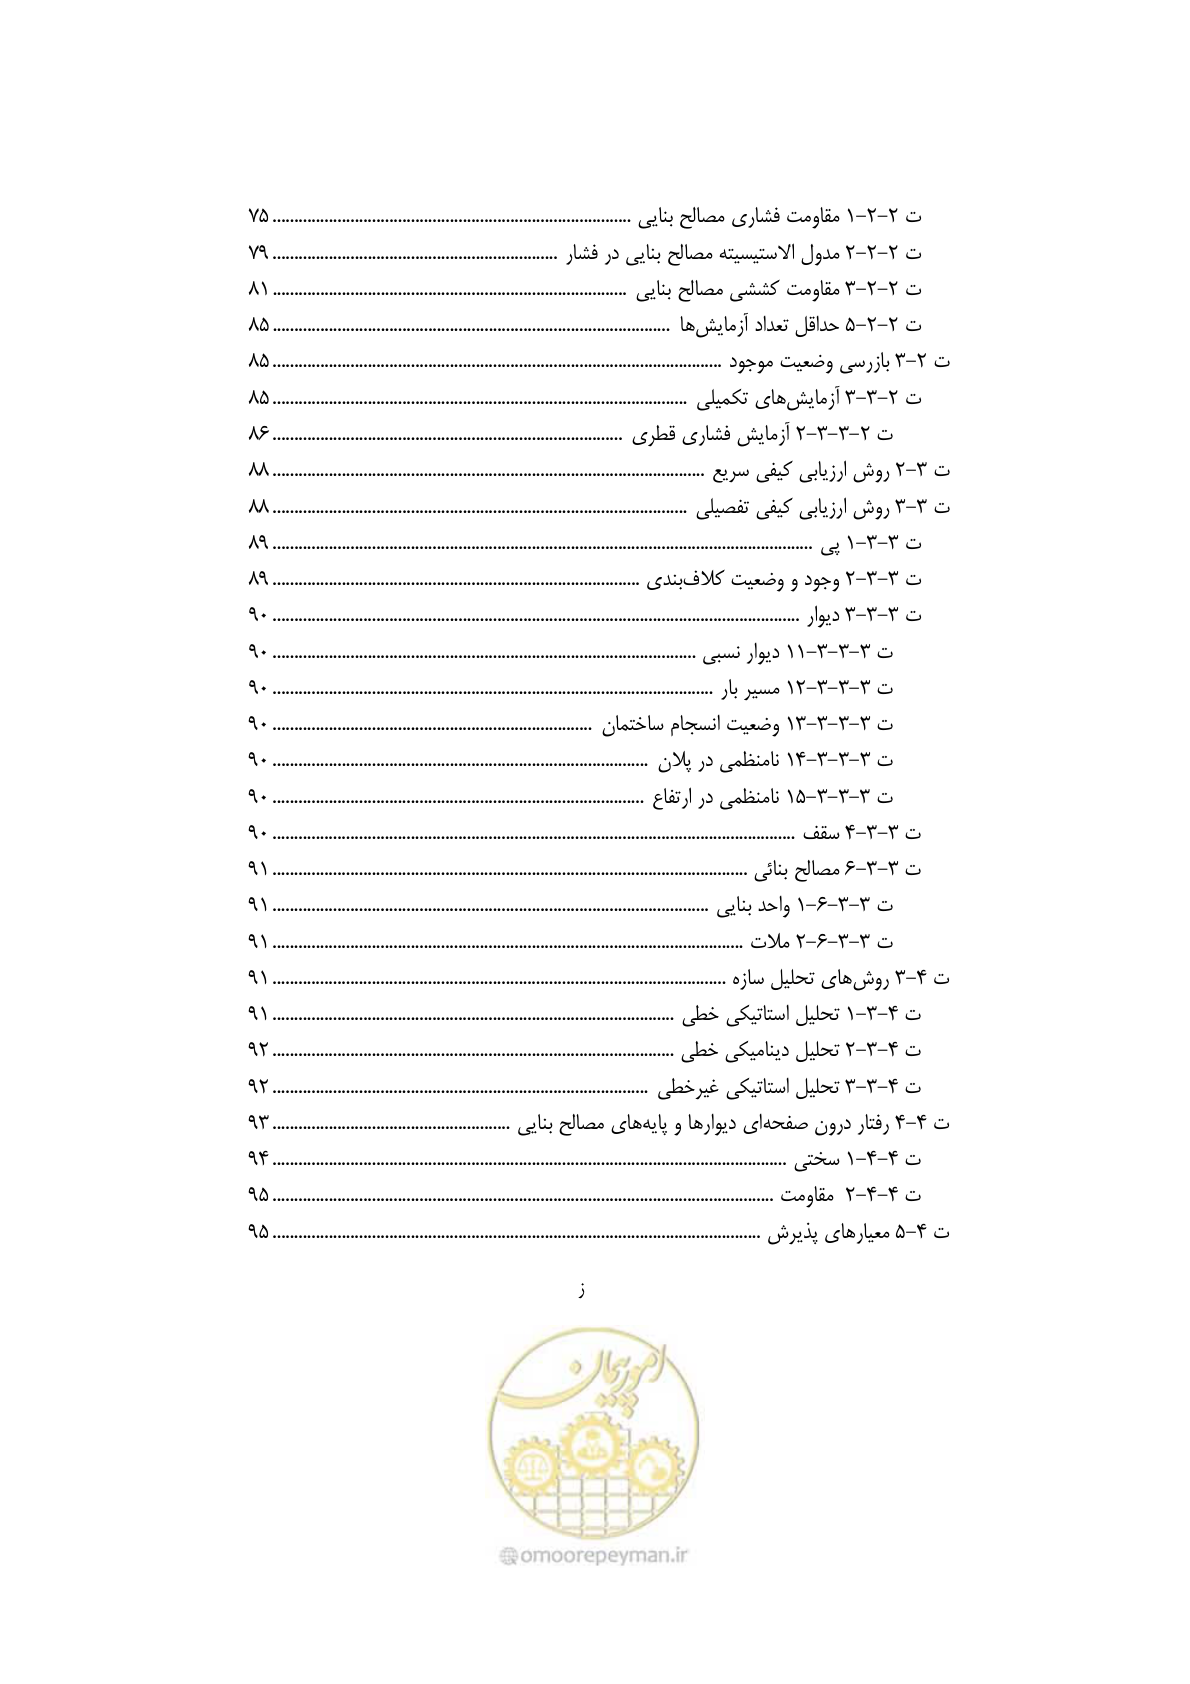 ت ۲-۲-۱ مقاومت فشاری مصالح بنایی ........ ۷۵
ت ۲-۲-۲ مدول الاستیسیته مصالح بنایی در فشار ........ ۷۹
ت ۲-۲-۳ مقاومت کششی مصالح بنایی ........ ۸۱
ت ۲-۲-۵ حداقل تعداد آزمایش‌ها ........ ۸۵
ت ۲-۳ بازرسی وضعیت موجود ........ ۸۵
ت ۲-۳-۳ آزمایش‌های تکمیلی ........ ۸۵
ت ۲-۳-۳-۲ آزمایش فشاری قطری ........ ۸۶
ت ۳-۲ روش ارزیابی کیفی سریع ........ ۸۸
ت ۳-۳ روش ارزیابی کیفی تفصیلی ........ ۸۸
ت ۳-۳-۱ پی ........ ۸۹
ت ۳-۳-۲ وجود و وضعیت کلاف‌بندی ........ ۸۹
ت ۳-۳-۳ دیوار ........ ۹۰
ت ۳-۳-۳-۱۱ دیوار نسبی ........ ۹۰
ت ۳-۳-۳-۱۲ مسیر بار ........ ۹۰
ت ۳-۳-۳-۱۳ وضعیت انسجام ساختمان ........ ۹۰
ت ۳-۳-۳-۱۴ نامنظمی در پلان ........ ۹۰
ت ۳-۳-۳-۱۵ نامنظمی در ارتفاع ........ ۹۰
ت ۳-۳-۴ سقف ........ ۹۰
ت ۳-۳-۶ مصالح بنائی ........ ۹۱
ت ۳-۳-۶-۱ واحد بنایی ........ ۹۱
ت ۳-۳-۶-۲ ملات ........ ۹۱
ت ۴-۳ روش‌های تحلیل سازه ........ ۹۱
ت ۴-۳-۱ تحلیل استاتیکی خطی ........ ۹۱
ت ۴-۳-۲ تحلیل دینامیکی خطی ........ ۹۲
ت ۴-۳-۳ تحلیل استاتیکی غیرخطی ........ ۹۲
ت ۴-۴ رفتار درون صفحه‌ای دیوارها و پایه‌های مصالح بنایی ........ ۹۳
ت ۴-۴-۱ سختی ........ ۹۴
ت ۴-۴-۲ مقاومت ........ ۹۵
ت ۴-۵ معیارهای پذیرش ........ ۹۵
ز
امور پیمان
omoorepeyman.ir